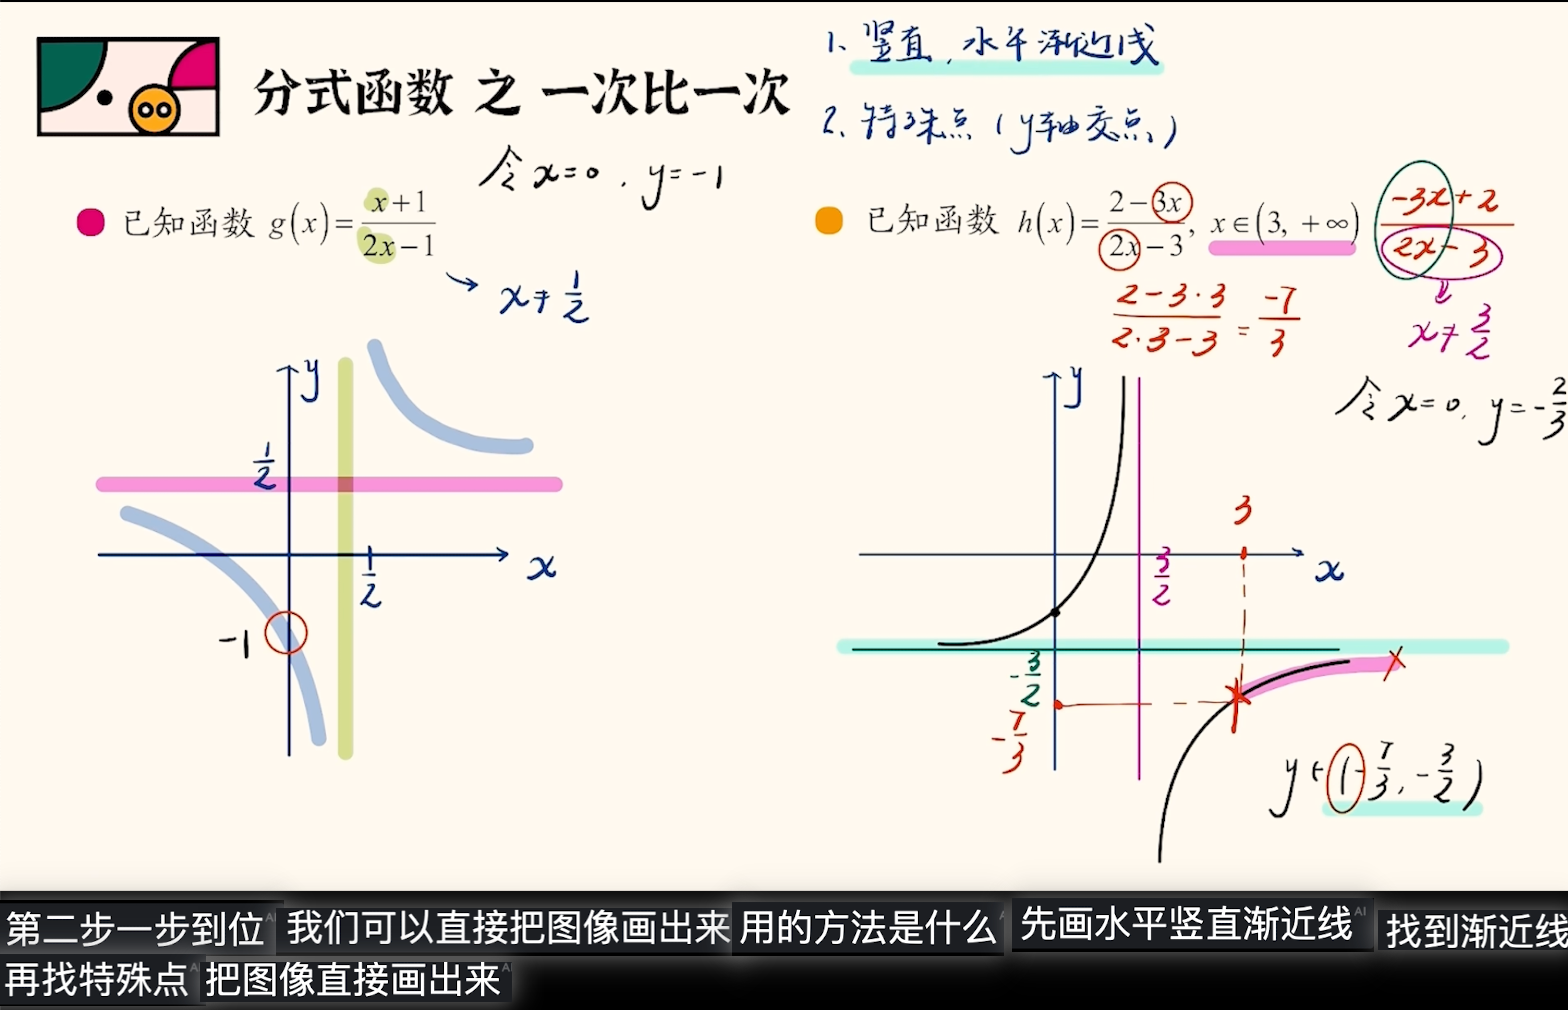 分式函数 之 一次比一次
1、竖直，水平渐近线
2、特殊点（y轴交点）
令x=0，y=-1
已知函数 g(x)=\frac{x+1}{2x-1}
→ x≠\frac{1}{2}
y
\frac{1}{2}
x
\frac{1}{2}
-1
已知函数 h(x)=\frac{2-3x}{2x-3}, x∈(3, +∞)
\frac{-3x+2}{2x-3}
\frac{2-3·3}{2·3-3}=\frac{-7}{3}
x≠\frac{3}{2}
令x=0，y=-\frac{2}{3}
y
3
x
\frac{3}{2}
-\frac{3}{2}
-\frac{7}{3}
y∈(-\frac{7}{3}, -\frac{3}{2})
第二步一步到位 我们可以直接把图像画出来 用的方法是什么 先画水平竖直渐近线 找到渐近线
再找特殊点 把图像直接画出来